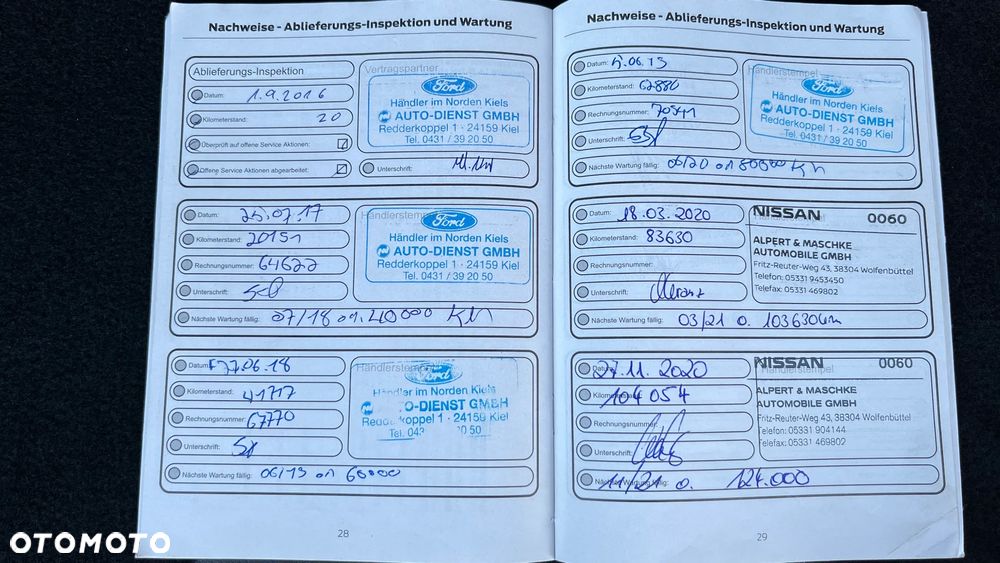 Nachweise - Ablieferungs-Inspektion und Wartung
Ablieferungs-Inspektion
Vertragspartner
Datum: 1.9.2016
Kilometerstand: 20
Überprüft auf offene Service Aktionen:
Offene Service Aktionen abgearbeitet:
Ford
Händler im Norden Kiels
AUTO-DIENST GMBH
Redderkoppel 1 · 24159 Kiel
Tel. 0431 / 39 20 50
Unterschrift:
Datum: 25.07.17
Kilometerstand: 20151
Rechnungsnummer: 64622
Unterschrift:
Händlerstempel
Ford
Händler im Norden Kiels
AUTO-DIENST GMBH
Redderkoppel 1 · 24159 Kiel
Tel. 0431 / 39 20 50
Nächste Wartung fällig: 07/18 01. 40000 KM
Datum: 27.06.18
Kilometerstand: 41717
Rechnungsnummer: 67770
Unterschrift:
Händlerstempel
Ford
Händler im Norden Kiels
O-DIENST GMBH
koppel 1 · 24159 Kiel
Tel. 043 20 50
Nächste Wartung fällig: 06/19 01 60000
28
Nachweise - Ablieferungs-Inspektion und Wartung
Datum: 5.06.19
Kilometerstand: 62880
Rechnungsnummer: 70541
Unterschrift:
Händlerstempel
Ford
Händler im Norden Kiels
AUTO-DIENST GMBH
Redderkoppel 1 · 24159 Kiel
Tel. 0431 / 39 20 50
Nächste Wartung fällig: 06/20 01 80000 Km
Datum: 18.03.2020
Kilometerstand: 83630
Rechnungsnummer:
Unterschrift:
NISSAN 0060
ALPERT & MASCHKE
AUTOMOBILE GMBH
Fritz-Reuter-Weg 43, 38304 Wolfenbüttel
Telefon: 05331 9453450
Telefax: 05331 469802
Nächste Wartung fällig: 03/21 o. 103630km
Datum: 27.11.2020
Kilometerstand: 104054
Rechnungsnummer:
Unterschrift:
NISSAN 0060
Händlerstempel
ALPERT & MASCHKE
AUTOMOBILE GMBH
Fritz-Reuter-Weg 43, 38304 Wolfenbüttel
Telefon: 05331 904144
Telefax: 05331 469802
Nächste Wartung fällig: 11/21 o. 124.000
29
OTOMOTO